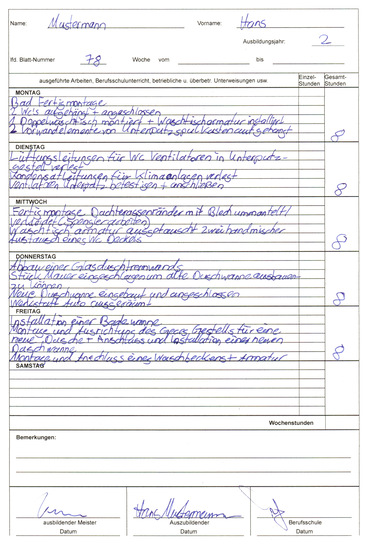 Name: Mustermann Vorname: Hans
Ausbildungsjahr: 2
lfd. Blatt-Nummer 78 Woche vom bis
ausgeführte Arbeiten, Berufsschulunterricht, betriebliche u. überbetr. Unterweisungen usw. Einzel-Stunden Gesamt-Stunden
MONTAG
Bad Fertigmontage
2 Wc's aufgehängt + angeschlossen
1 Doppelwaschtisch montiert + Waschtischarmatur installiert
2 Vorwandelemente von Unterputzspülkasten aufgehängt
8
DIENSTAG
Lüftungsleitungen für Wc Ventilatoren in Unterputz-
gestell verlegt
Kondensatleitungen für Klimaanlagen verlegt
Ventilatoren Unterputz befestigen + anschliessen
8
MITTWOCH
Fertigmontage Dachterassenränder mit Blech ummantelt/
verkleidet (Spenglerarbeiten)
Waschtisch armatur ausgetauscht zweihandmischer
Austausch eines Wc Deckels
8
DONNERSTAG
Abbau einer Glasduschtrennwand
Stück Mauer eingeschlagen um alte Duschwanne ausbauen
zu können
Neue Duschwanne eingebaut und angeschlossen
Werkstatt Auto ausgeräumt
8
FREITAG
Installation einer Badewanne
Montage und Ausrichtung des Gestells für eine
neue Dusche + Anschluss und Installation einer neuen
Duschwanne
Montage und Anschluss eines Waschbeckens + Armatur
8
SAMSTAG
Wochenstunden
Bemerkungen:
Hans Mustermann
ausbildender Meister Auszubildender Berufsschule
Datum Datum Datum